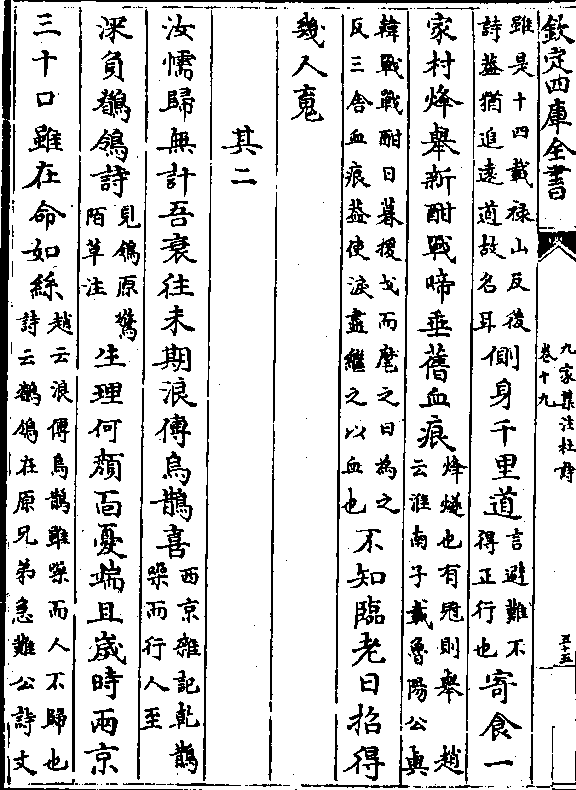 欽定四庫全書
九家集注杜詩
卷十九
五十五
雖是十四載祿山反後
詩蓋猶追遠道故名耳
側身千里道
言避難不
得正行也
寄食一
家村烽舉新酣戰啼垂舊血痕
烽燧也有冦則舉 趙
云淮南子載魯陽公與
韓戰戰酣日暮援戈而麾之日為之
反三舍血痕蓋使淚盡繼之以血也
不知臨老日招得
幾人䰟
其二
汝懦歸無計吾衰往未期浪傳烏鵲喜
西京雜記乾鵲
噪而行人至
深負鶺鴒詩
見鴒原驚
陌草注
生理何顏面憂端且歲時兩京
三十口雖在命如絲
趙云浪傳烏鵲雖噪而人不歸也
詩云鶺鴒在原兄弟急難公詩丈